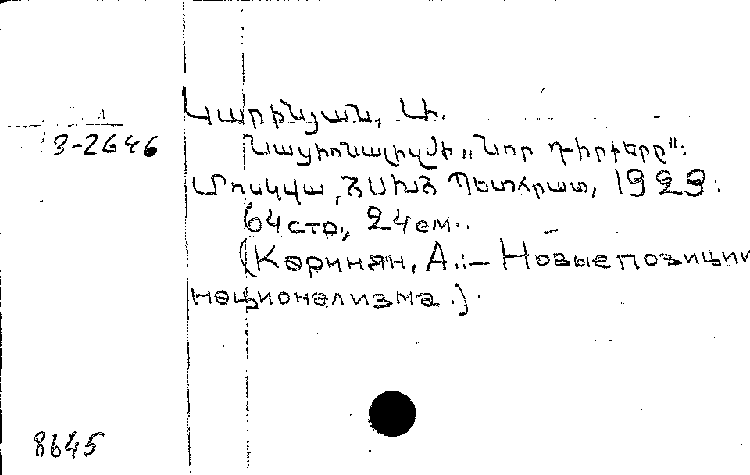 Կարինյան, Ա.
3-2646
Նացիոնալիզմի „Նոր դիրքերը":
Մոսկվա, ՀՍԽՀ Պետհրատ, 1929:
64 стр., 24 см.
(Каринян, А.:— Новые позиции
национализма.).
8645